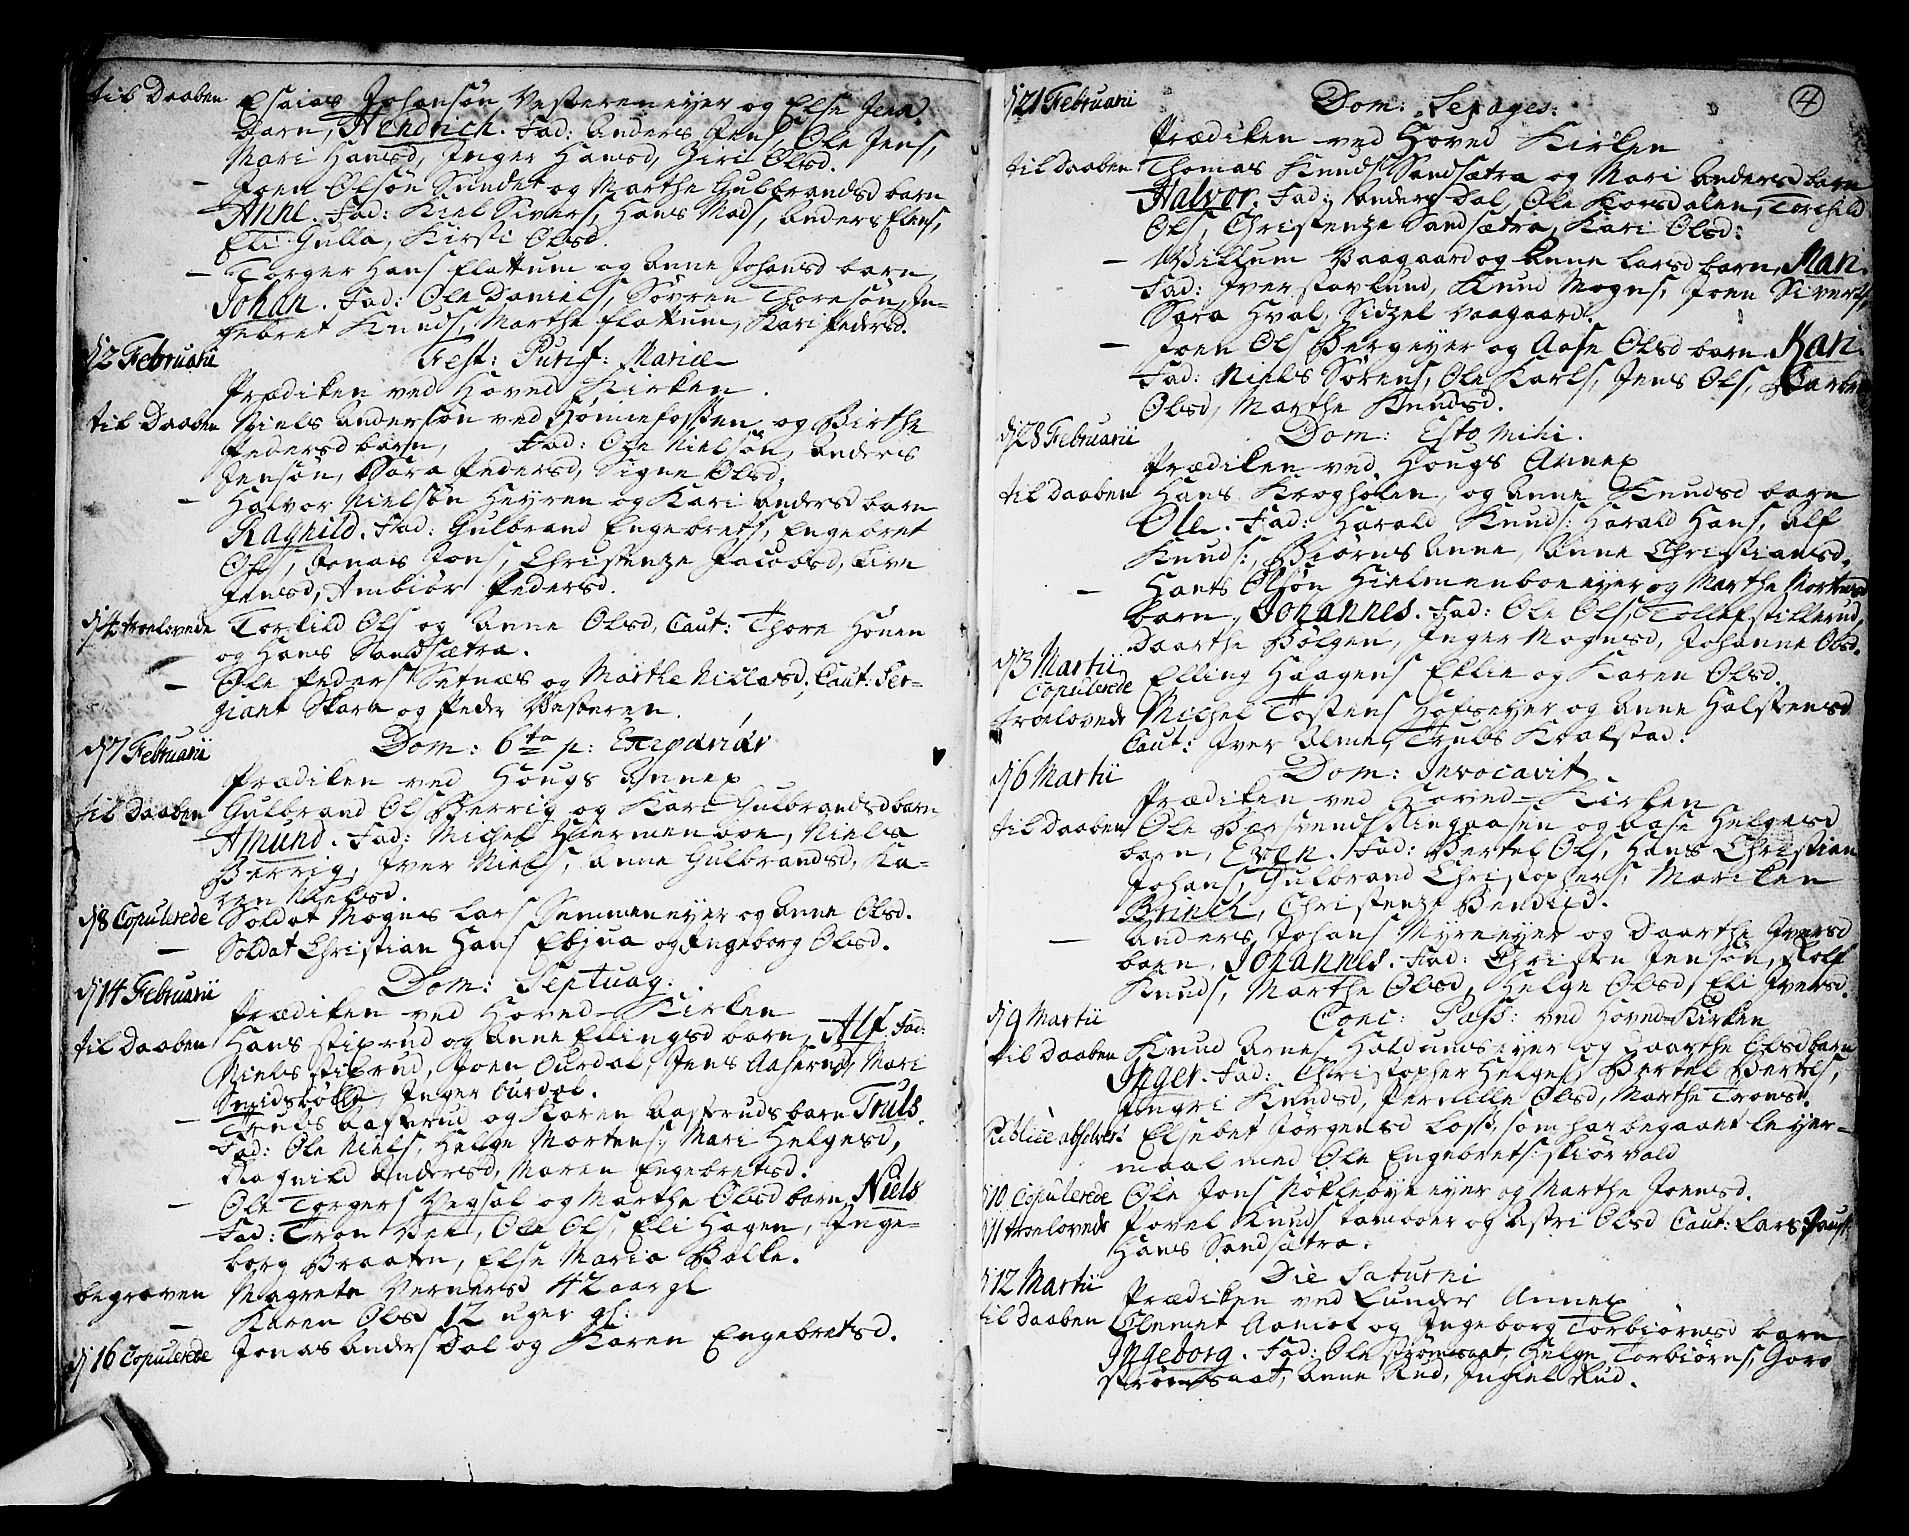 til Daaben Esaias Johansøn Vesteren eyer og Else Jens
barn, Hendrich. Fad: Anders Jens, Ole Jens,
Mari Hansd, Inger Hansd, Ziri Olsd.
– Joen Olsøn Sundet og Marthe Gulbrandsd barn
Anne. Fad: Kiel Sivers, Hans Mads, Anders Elens,
Eli Gulla, Kirsti Olsd.
– Torger Hans flattum og Anne Johansd barn,
Johan. Fad: Ole Daniels, Søvren Thoresøn, In-
gebret Knuds, Marthe flattum, Kari Pedersd.
d 2 Februarii Fest: Purif: Mariæ
Prædiken ved Hoved Kirken.
til Daaben Niels Andersøn ved Hønnefossen og Birthe
Pedersd barn, Fad: Ole Nielsøn, Anders
Jensøn, Sara Pedersd, Signe Olsd,
– Halvor Nielsøn Heyren og Kari Andersd barn
Ragnild. Fad: Gulbrand Engebrets, Engebret
Ols, Jonas Jons, Christenze Jacobsd, Live
Jensd, Ambiør Pedersd.
d 4 troelovede Torkild Ols og Anne Olsd, Caut: Thore Hønen
og Hans Sandsætra.
– Ole Peders Setnæs og Marthe Niclasd. Caut: Ser-
giant Skara og Peder Vesteren.
d 7 Februarii Dom: 6ta p: Epiphan:
Prædiken ved Hougs Annex
til Daaben Gulbrand Ols Berrig og Kari Gulbrandsd barn
Amund. Fad: Michel Hiermenboe, Niels
Berrig, Iver Niels, Anne Gulbrandsd, Ka-
ren Nielsd.
d 8 Copulerede Soldat Mogens Lars Semmen eyer og Anne Olsd.
– Soldat Christian Hans Ebjua og Ingeborg Olsd.
d 14 Februarii Dom: Septuag:
Prædiken ved Hoved Kirken
til Daaben Hans stixrud og Anne Ellingsd barn, Alf Fad:
Niels stixrud, Joen Ourdal, Jens Aaserud, Mari
Smidsbøle, Inger Ourdal.
– Truls Aasterud og Karen Aasteruds barn Truls.
Fad: Ole Niels, Helge Mortens, Mari Helgesd,
Ragnild Andersd, Maren Engebretsd.
– Ole Torgers Vegsal og Marthe Olsd barn, Niels
Fad: Tron Vek, Ole Ols, Eli Hagen, Inge-
borg Braaten, Else Maria Bolle.
begraven Magrete Vernersd 42 aar gl
– Karen Olsd 12 uger gl:
d 16 Copulerede Jonas Anders Dal og Karen Engebretsd.
4
d 21 Februarii Dom: Sexages:
Prædiken ved Hoved Kirken
til Daaben Thomas Knuds Sandsætra og Mari Andersd barn
Halvor. Fad: Anders Dal, Ole Korsdalen, Torchild
Ols, Christenze Sandsætra, Kari Olsd:
– Willum Vaagaard og Anne Larsd barn, Mari.
Fad: Iver stavlund, Knud Mogns, Joen Siverts,
Sara Hval, Sidzel Vaagaard.
– Joen Ols Berg eyer og Aase Olsd barn. Kari.
Fad: Niels Sørens, Ole Karls, Jens Ols, Barbra
Olsd, Marthe Knudsd.
d 28 Februarii Dom: Esto Mihi.
Prædiken ved Hougs Annex
til Daaben Hans Kroghølen, og Anne Knudsd barn
Ole. Fad: Harald Knuds: Harald Hans, Alf
Knuds: Biørns Anne, Anne Christiansd,
– Hans Olsøn Hielmenboe eyer og Marthe Mortensd
barn, Johannes. Fad: Ole Ols, Tollef stillerud,
Daarthe Bølgen, Inger Mognsd, Johanne Olsd.
d 3 Martii Copulerede Elling Haagens Ellie og Karen Olsd.
troelovede Michel Tostens Hofs eyer og Anne Halstensd
Caut: Iver Alme, Truls Krakstad:
d 6 Martii Dom: Invocavit
Prædiken ved Hoved Kirken
til Daaben Ole Bersvends Ringaasen og Aase Helgesd
barn, Even. Fad: Bertel Ols, Hans Christian
Johans, Gulbrand Christophers, Mariken
Brinch, Christenze Bendixd.
– Anders Johans Myren eyer og Daarthe Iversd
barn, Johannes. Fad: Christen Jensøn, Rolf
Knuds, Marthe Olsd, Helge Olsd, Eli Iversd.
d 9 Martii Conc: Pass: ved Hoved Kirken
til Daaben Knud Arnes Haldums eyer og Daarthe Olsd barn
Inger. Fad: Christopher Helges, Bertel Bertels,
Ingri Knudsd, Pernille Olsd, Marthe Tronsd.
Publice absolvert Elsebet Jørgensd Loss, som har begaaet leyer-
maal med Ole Engebrets: skiørvald
d 10 Copulerede Ole Jons Nøkleby eyer og Marthe Joensd.
d 11 troelovede Povel Knuds tamboer og Astri Olsd Caut: Lars Faust
Hans Sandsætra.
d 12 Martii Die Saturni
Prædiken ved Lunder Annex
til Daaben Clemet Aamot og Ingeborg Torbiørnsd barn
Ingeborg. Fad: Ole strømsaat, Helge Torbiørns, Goro
strømsaat, Anne Rud, Ingiel Rud.